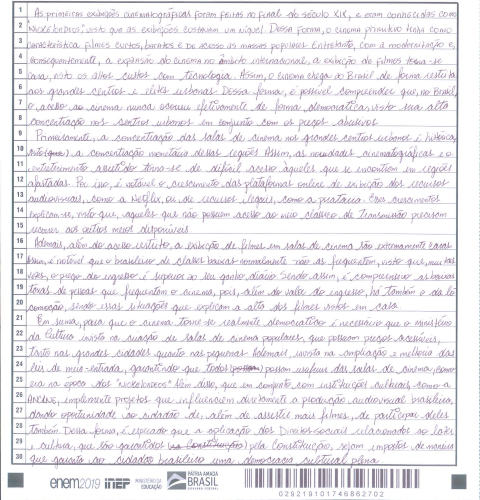 1 As primeiras exibições cinematográficas foram feitas no final do século XIX, e eram conhecidas como
2 "nickelodeons", visto que as exibições custavam um níquel. Dessa forma, o cinema primitivo tinha como
3 característica filmes curtos, baratos e de acesso às massas populares. Entretanto, com a modernização e,
4 consequentemente, a expansão do cinema no âmbito internacional, a exibição de filmes torna-se
5 cara, visto os altos custos com tecnologia. Assim, o cinema chega ao Brasil de forma restrita
6 aos grandes centros e elites urbanas. Dessa forma, é possível compreender que, no Brasil,
7 o acesso ao cinema nunca ocorreu efetivamente de forma democrática, visto sua alta
8 concentração nos centros urbanos em conjunto com os preços abusivos.
9 Primeiramente, a concentração das salas de cinema nos grandes centros urbanos é histórica,
10 a concentração monetária dessas regiões. Assim, as novidades cinematográficas e o
11 entretenimento assistido torna-se de difícil acesso àqueles que se encontram em regiões
12 afastadas. Por isso, é notável o crescimento das plataformas online de exibição dos recursos
13 audiovisuais, como a Netflix, ou de recursos ilegais, como a pirataria. Esses crescimentos
14 explicam-se, visto que, aqueles que não possuem acesso ao meio clássico de transmissão precisam
15 recorrer aos outros meios disponíveis.
16 Ademais, além do acesso restrito, a exibição de filmes em salas de cinema são extremamente caras.
17 Assim, é notável que o brasileiro de classes baixas normalmente não as frequentem, visto que, muitas
18 vezes, o preço do ingresso é superior ao seu ganho diário. Sendo assim, é compreensível as baixas
19 taxas de pessoas que frequentam o cinema, pois, além do valor do ingresso, há também o da lo
20 comoção, sendo essas situações que explicam a alta dos filmes vistos em casa.
21 Em suma, para que o cinema torne-se realmente democrático é necessário que o ministério
22 da Cultura invista na criação de salas de cinema populares, que possuam preços acessíveis,
23 tanto nas grandes cidades quanto nas pequenas. Ademais, invista na ampliação e melhoria das
24 leis de meia-entrada, garantindo que todos possam usufruir das salas de cinema, como
25 era na época dos "nickelodeons". Além disso, que em conjunto com instituições culturais, como a
26 ANCINE, implemente projetos que influenciem diretamente a produção audiovisual brasileira,
27 dando oportunidade ao cidadão de, além de assistir mais filmes, de participar deles
28 também. Dessa forma, é esperado que a aplicação dos Direitos sociais relacionados ao lazer
29 e cultura, que são garantidos pela Constituição, sejam impostos de maneira
30 que garanta ao cidadão brasileiro uma democracia cultural plena.
enem2019 inep MINISTÉRIO DA EDUCAÇÃO PÁTRIA AMADA BRASIL
029219101746862702